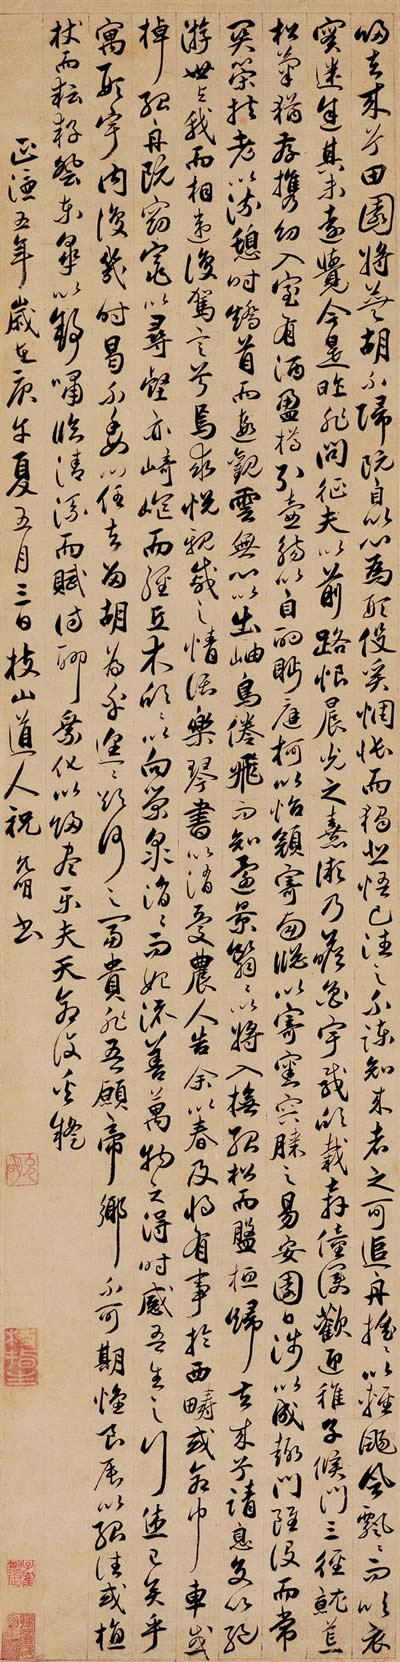 歸去來兮田園將蕪胡不歸既自以心為形役奚惆悵而獨悲悟已往之不諫知來者之可追舟搖〻以輕颺風飄〻而吹衣
實迷途其未遠覺今是昨非問征夫以前路恨晨光之熹微乃瞻衡宇載欣載奔僮僕歡迎稚子候門三徑就荒
松菊猶存攜幼入室有酒盈樽引壺觴以自酌眄庭柯以怡顏寄南牕以寄審容膝之易安園日涉以成趣門雖設而常
關策扶老以流憩時矯首而遐觀雲無心以出岫鳥倦飛而知還景翳〻以將入撫孤松而盤桓歸去來兮請息交以絕
游世與我而相違復駕言兮焉求悅親戚之情話樂琴書以消憂農人告余以春及將有事於西疇或命巾車或
棹孤舟既窈窕以尋壑亦崎嶇而經丘木欣〻以向榮泉涓〻而始流善萬物之得時感吾生之行休已矣乎
寓形宇內復幾時曷不委心任去留胡為乎遑〻欲何之富貴非吾願帝鄉不可期懷良辰以孤往或植
杖而耘耔登東皋以舒嘯臨清流而賦詩聊乘化以歸盡樂夫天命復奚疑
正德五年歲在庚午夏五月三日枝山道人祝允明書